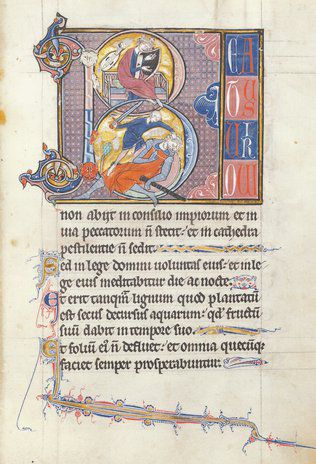 B
EA
TUS
VIR
non abijt in consilio impiorum et in
uia peccatorum ñ stetit· et in cathedra
pestilentie ñ sedit·
Sed in lege domini uoluntas eius· et in le
ge eius meditabitur die ac nocte·
Et erit tanq̃m lignum quod plantatũ
est secus decursus aquarum· qď fructũ
suũ dabit in tempore suo·
Et foliũ ei' ñ defluet· et omnia quecũq;
faciet semper prosperabuntur·